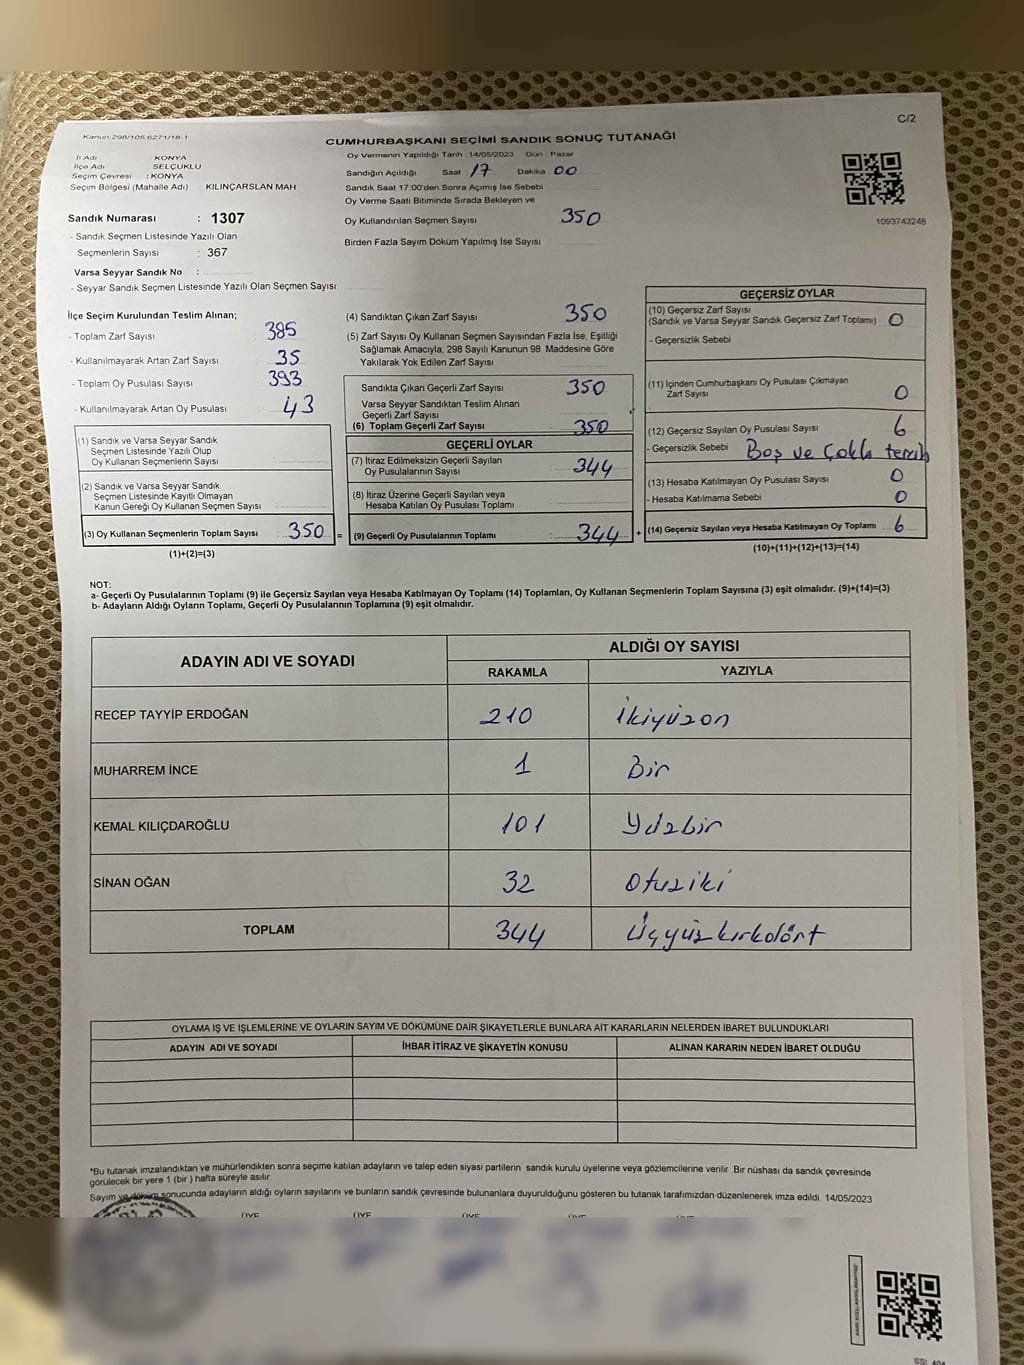 Kanun 298/105 6271/18-1
C/2
CUMHURBAŞKANI SEÇİMİ SANDIK SONUÇ TUTANAĞI
İl Adı KONYA
İlçe Adı SELÇUKLU
Seçim Çevresi : KONYA
Seçim Bölgesi (Mahalle Adı) KILINÇARSLAN MAH
Oy Vermenin Yapıldığı Tarih : 14/05/2023 Gün : Pazar
Sandığın Açıldığı Saat : 17 Dakika : 00
Sandık Saat 17:00'den Sonra Açımış İse Sebebi
Oy Verme Saati Bitiminde Sırada Bekleyen ve
Oy Kullandırılan Seçmen Sayısı 350
Birden Fazla Sayım Döküm Yapılmış İse Sayısı
1093743248
Sandık Numarası : 1307
- Sandık Seçmen Listesinde Yazılı Olan
Seçmenlerin Sayısı : 367
Varsa Seyyar Sandık No :
- Seyyar Sandık Seçmen Listesinde Yazılı Olan Seçmen Sayısı
İlçe Seçim Kurulundan Teslim Alınan;
- Toplam Zarf Sayısı 385
- Kullanılmayarak Artan Zarf Sayısı 35
- Toplam Oy Pusulası Sayısı 393
- Kullanılmayarak Artan Oy Pusulası : 43
(1) Sandık ve Varsa Seyyar Sandık
Seçmen Listesinde Yazılı Olup
Oy Kullanan Seçmenlerin Sayısı
(2) Sandık ve Varsa Seyyar Sandık
Seçmen Listesinde Kayıtlı Olmayan
Kanun Gereği Oy Kullanan Seçmen Sayısı
(3) Oy Kullanan Seçmenlerin Toplam Sayısı : 350 =
(1)+(2)=(3)
(4) Sandıktan Çıkan Zarf Sayısı 350
(5) Zarf Sayısı Oy Kullanan Seçmen Sayısından Fazla İse, Eşitliği
Sağlamak Amacıyla, 298 Sayılı Kanunun 98. Maddesine Göre
Yakılarak Yok Edilen Zarf Sayısı
Sandıkta Çıkan Geçerli Zarf Sayısı 350
Varsa Seyyar Sandıktan Teslim Alınan
Geçerli Zarf Sayısı
(6) Toplam Geçerli Zarf Sayısı 350
GEÇERLİ OYLAR
(7) İtiraz Edilmeksizin Geçerli Sayılan
Oy Pusulalarının Sayısı 344
(8) İtiraz Üzerine Geçerli Sayılan veya
Hesaba Katılan Oy Pusulası Toplamı
(9) Geçerli Oy Pusulalarının Toplamı : 344 +
GEÇERSİZ OYLAR
(10) Geçersiz Zarf Sayısı
(Sandık ve Varsa Seyyar Sandık Geçersiz Zarf Toplamı) 0
- Geçersizlik Sebebi
(11) İçinden Cumhurbaşkanı Oy Pusulası Çıkmayan
Zarf Sayısı 0
(12) Geçersiz Sayılan Oy Pusulası Sayısı 6
- Geçersizlik Sebebi Boş ve Çoklu tercih
(13) Hesaba Katılmayan Oy Pusulası Sayısı 0
- Hesaba Katılmama Sebebi 0
(14) Geçersiz Sayılan veya Hesaba Katılmayan Oy Toplamı 6
(10)+(11)+(12)+(13)=(14)
NOT:
a- Geçerli Oy Pusulalarının Toplamı (9) ile Geçersiz Sayılan veya Hesaba Katılmayan Oy Toplamı (14) Toplamları, Oy Kullanan Seçmenlerin Toplam Sayısına (3) eşit olmalıdır. (9)+(14)=(3)
b- Adayların Aldığı Oyların Toplamı, Geçerli Oy Pusulalarının Toplamına (9) eşit olmalıdır.
ADAYIN ADI VE SOYADI ALDIĞI OY SAYISI
RAKAMLA YAZIYLA
RECEP TAYYİP ERDOĞAN 210 İkiyüzon
MUHARREM İNCE 1 Bir
KEMAL KILIÇDAROĞLU 101 Yüzbir
SİNAN OĞAN 32 Otuziki
TOPLAM 344 Üçyüzkırkdört
OYLAMA İŞ VE İŞLEMLERİNE VE OYLARIN SAYIM VE DÖKÜMÜNE DAİR ŞİKAYETLERLE BUNLARA AİT KARARLARIN NELERDEN İBARET BULUNDUKLARI
ADAYIN ADI VE SOYADI İHBAR İTİRAZ VE ŞİKAYETİN KONUSU ALINAN KARARIN NEDEN İBARET OLDUĞU
*Bu tutanak imzalandıktan ve mühürlendikten sonra seçime katılan adayların ve talep eden siyasi partilerin sandık kurulu üyelerine veya gözlemcilerine verilir. Bir nüshası da sandık çevresinde
görülecek bir yere 1 (bir ) hafta süreyle asılır.
Sayım ve döküm sonucunda adayların aldığı oyların sayılarını ve bunların sandık çevresinde bulunanlara duyurulduğunu gösteren bu tutanak tarafımızdan düzenlenerek imza edildi. 14/05/2023
ÜYE ÜYE ÜYE ÜYE ÜYE